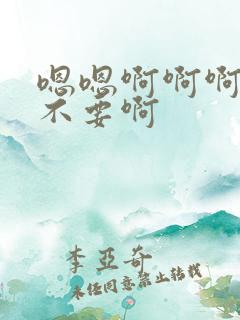 嗯嗯啊啊啊
不要啊
李亚奇
未经同意禁止转载